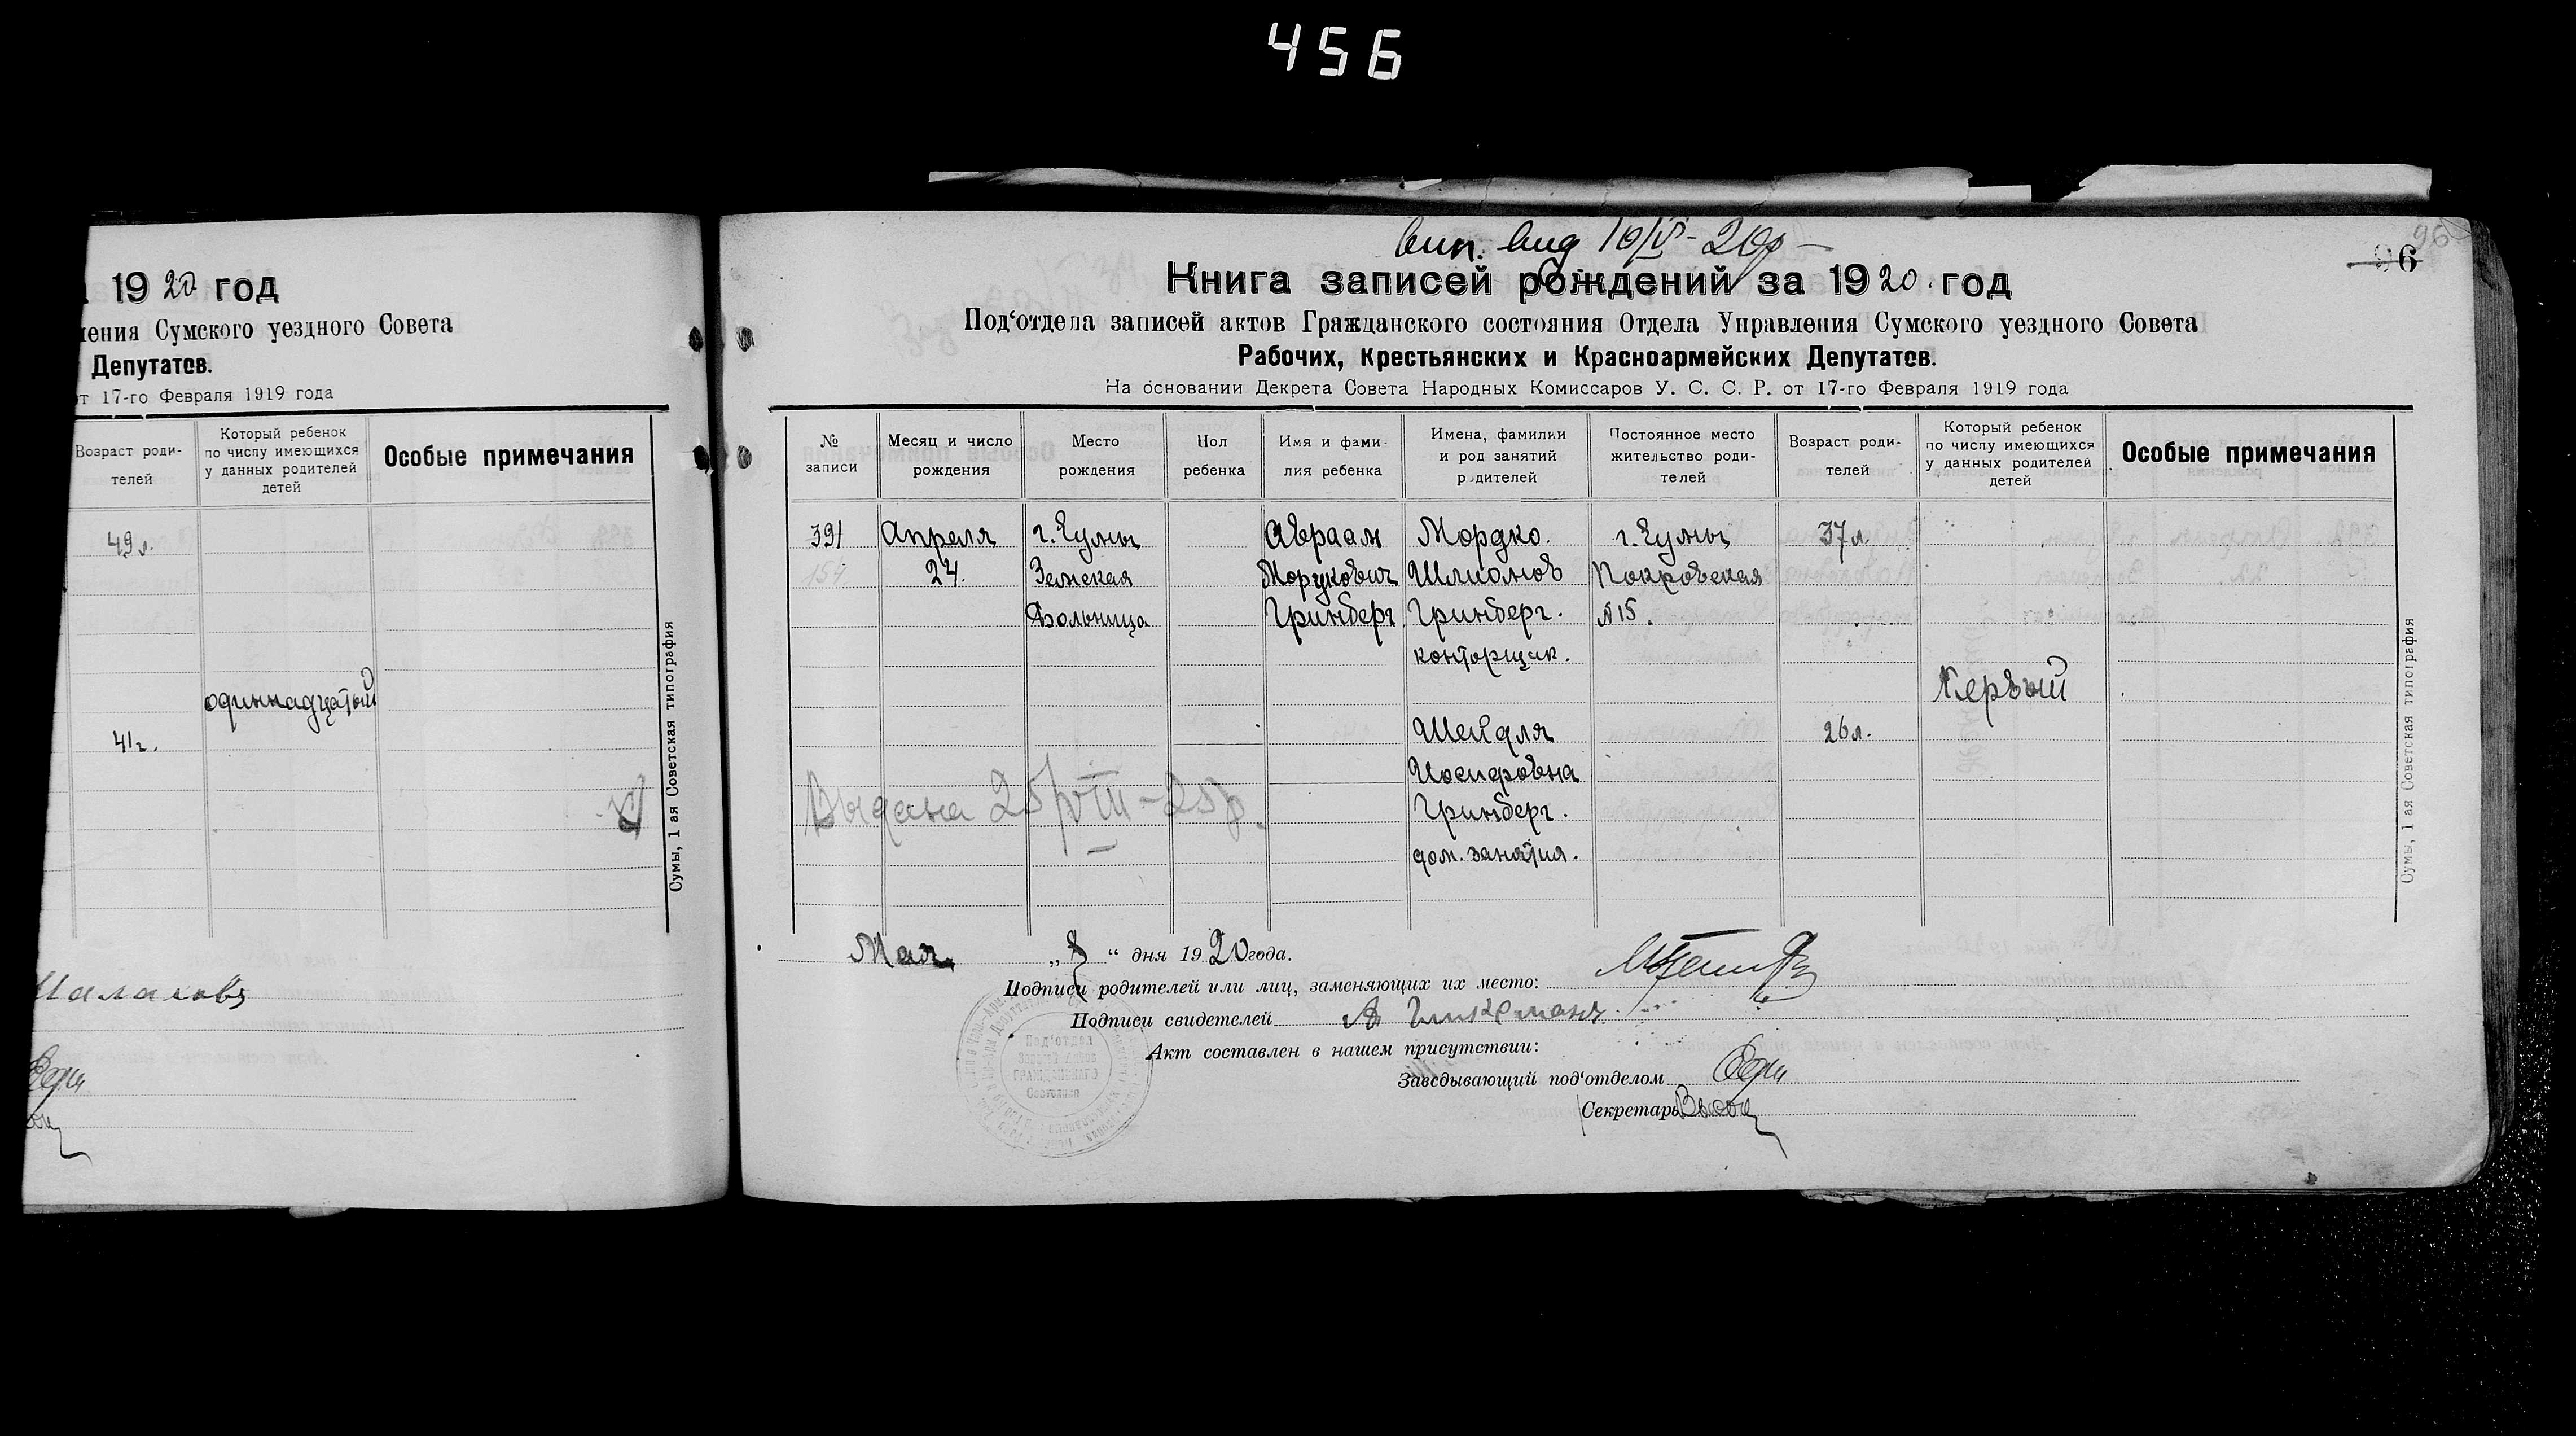 456
1920 год
ления Сумского уездного Совета
Депутатов.
от 17-го Февраля 1919 года
Возраст роди-
телей
Который ребенок
по числу имеющихся
у данных родителей
детей
Особые примечания
49 л.
одиннадцатый
41 г.
Сумы, 1 ая Советская типография
10/V - 20 р
96
Книга записей рождений за 1920. год
Под'отдела записей актов Гражданского состояния Отдела Управления Сумского уездного Совета
Рабочих, Крестьянских и Красноармейских Депутатов.
На основании Декрета Совета Народных Комиссаров У. С. С. Р. от 17-го Февраля 1919 года
№
записи
Месяц и число
рождения
Место
рождения
Пол
ребенка
Имя и фами-
лия ребенка
Имена, фамилии
и род занятий
родителей
Постоянное место
жительство роди-
телей
Возраст роди-
телей
Который ребенок
по числу имеющихся
у данных родителей
детей
Особые примечания
391
Апреля
24.
г. Сумы
Земская
больница
Авраам
Мордкович
Гринберг.
Мордко
Шлиомов
Гринберг.
конторщик.
г. Сумы
Покровская
№ 15.
37 л.
Первый
Шейдля
Иосифовна
Гринберг.
дом. занятия.
26 л.
Выдана 25/VIII-25 р.
Мая „8“ дня 1920 года.
Подписи родителей или лиц, заменяющих их место:
Подписи свидетелей
Акт составлен в нашем присутствии:
Заведывающий под'отделом
Секретарь
Под'отдел
Записей Актов
ГРАЖДАНСКАГО
Состояния
Сумы, 1 ая Советская типография